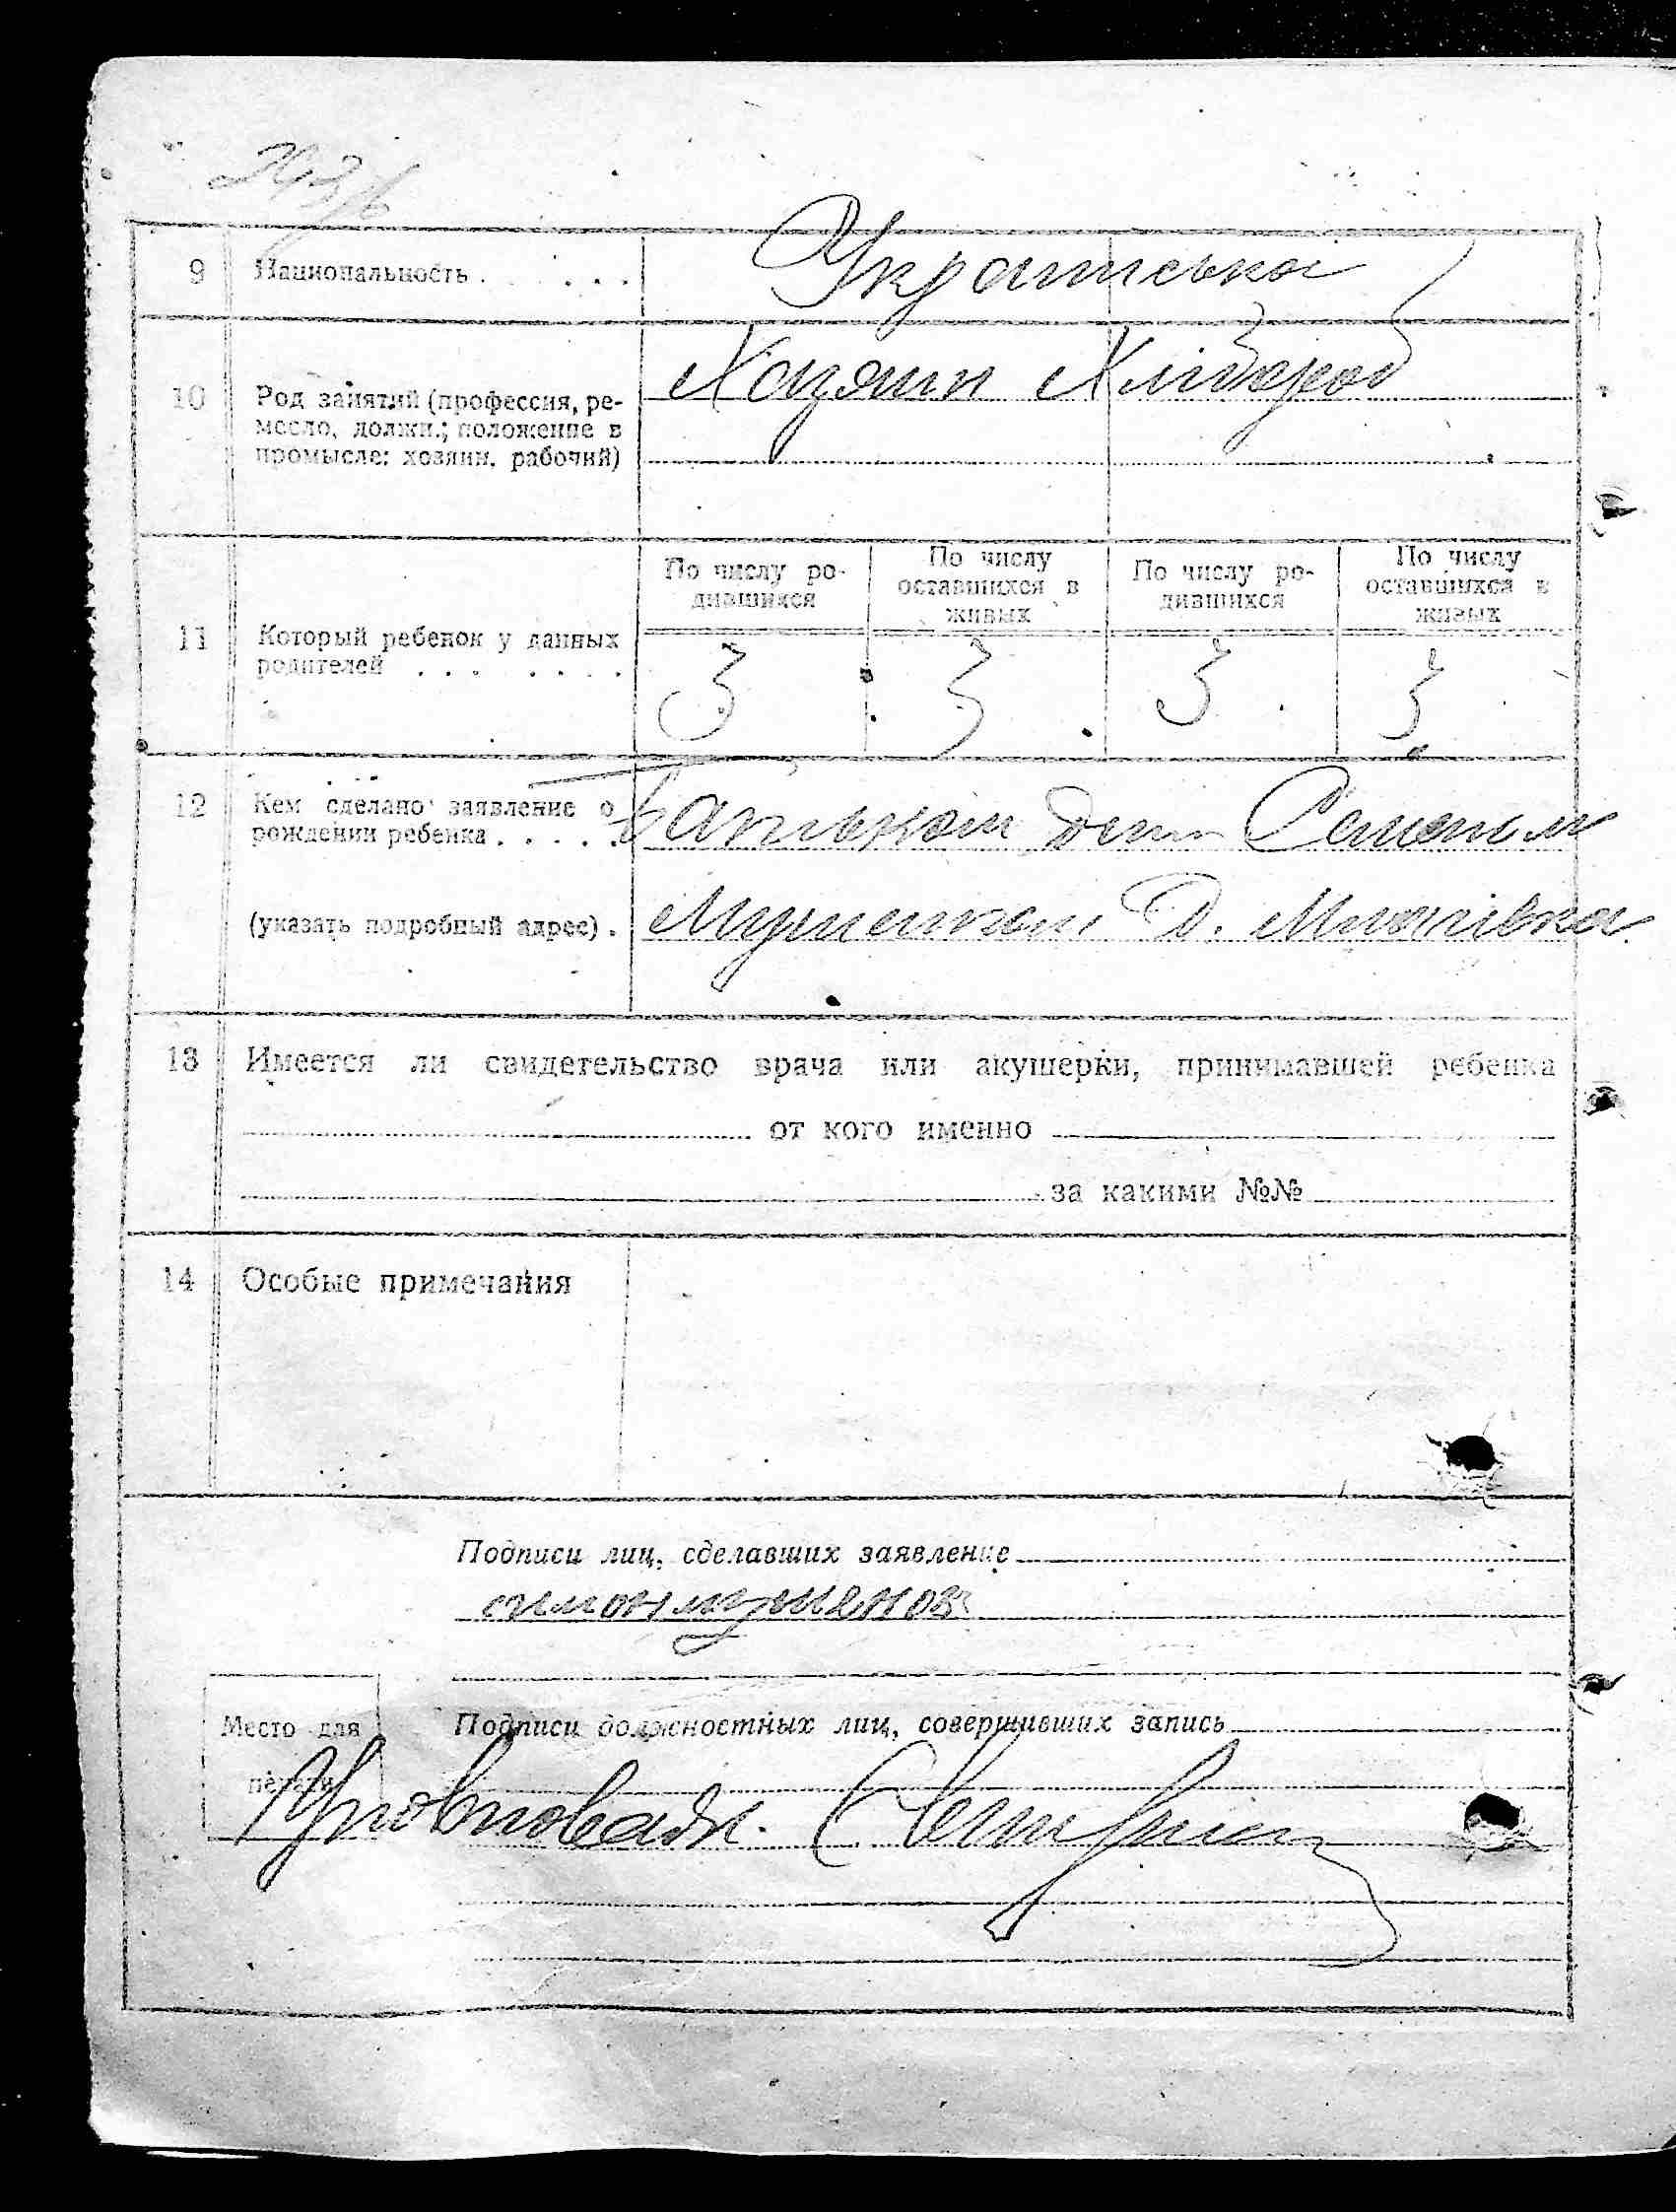 9 Национальность . . . . . . Українська
10 Род занятий (профессия, ре-
месло, должн.; положение в
промысле: хозяин, рабочий)
Хазяин Хлібороб
11 Который ребенок у данных
родителей . . . . . . .
По числу ро-
дившихся
По числу
оставшихся в
живых
По числу ро-
дившихся
По числу
оставшихся в
живых
3 3 3 3
12 Кем сделано заявление о
рождении ребенка . . . . .
Батьком
(указать подробный адрес) .
Д.
13 Имеется ли свидетельство врача или акушерки, принимавшей ребенка
от кого именно
за какими №№
14 Особые примечания
Подписи лиц, сделавших заявление
Место для
печати
Подписи должностных лиц, совершивших запись